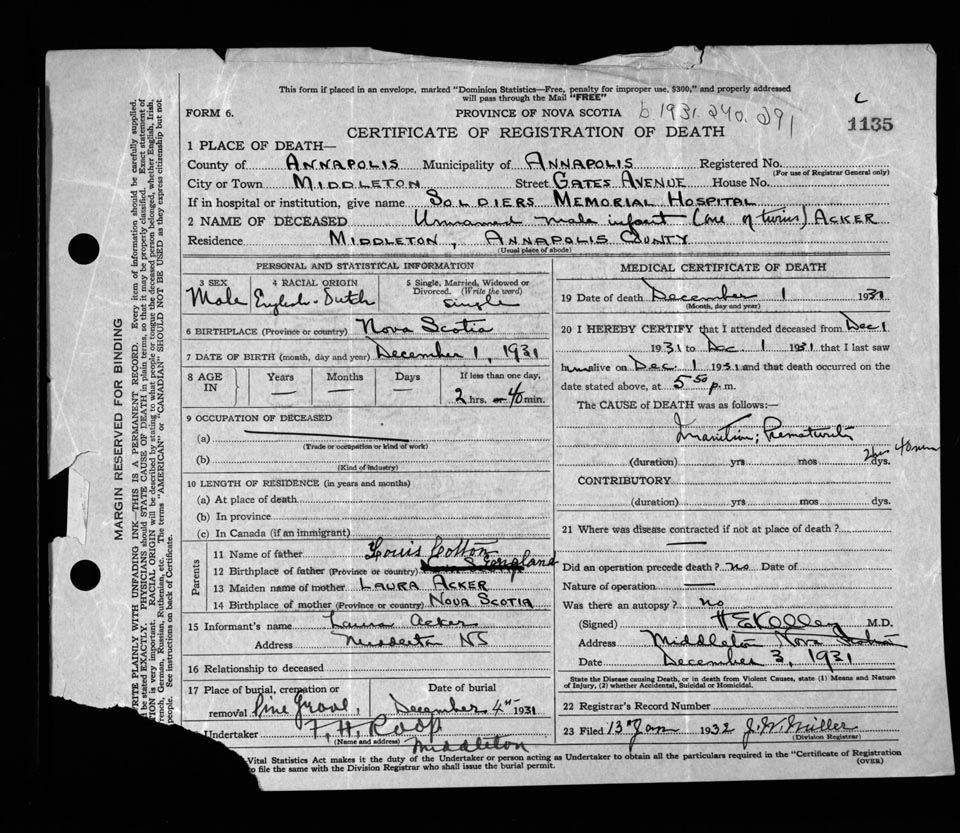 This form if placed in an envelope, marked "Dominion Statistics—Free, penalty for improper use, $300," and properly addressed
will pass through the Mail "FREE"
FORM 6. PROVINCE OF NOVA SCOTIA b 1931. 240. 291
1135
CERTIFICATE OF REGISTRATION OF DEATH
1 PLACE OF DEATH—
County of ANNAPOLIS Municipality of ANNAPOLIS Registered No.
(For use of Registrar General only)
City or Town MIDDLETON Street GATES AVENUE House No.
If in hospital or institution, give name SOLDIERS MEMORIAL HOSPITAL
2 NAME OF DECEASED Unnamed male infant (one of twins) ACKER
Residence MIDDLETON, ANNAPOLIS COUNTY
(Usual place of abode)
PERSONAL AND STATISTICAL INFORMATION
3 SEX Male
4 RACIAL ORIGIN English-Dutch
5 Single, Married, Widowed or Divorced. (Write the word) Single
6 BIRTHPLACE (Province or country) Nova Scotia
7 DATE OF BIRTH (month, day and year) December 1, 1931
8 AGE IN Years — Months — Days — If less than one day, 2 hrs. or 40 min.
9 OCCUPATION OF DECEASED
(a)
(Trade or occupation or kind of work)
(b)
(Kind of industry)
10 LENGTH OF RESIDENCE (in years and months)
(a) At place of death
(b) In province
(c) In Canada (if an immigrant)
Parents
11 Name of father Louis Cotton
12 Birthplace of father (Province or country) England
13 Maiden name of mother LAURA ACKER
14 Birthplace of mother (Province or country) NOVA SCOTIA
15 Informant's name Laura Acker
Address NS
16 Relationship to deceased
17 Place of burial, cremation or removal Pine Grove,
Date of burial December 4th 1931
Undertaker F. H. Roop
(Name and address) Middleton
MEDICAL CERTIFICATE OF DEATH
19 Date of death December 1 1931
(Month, day and year)
20 I HEREBY CERTIFY that I attended deceased from Dec 1
1931 to Dec. 1 1931 that I last saw
him alive on Dec. 1 1931 and that death occurred on the
date stated above, at 5 50 p. m.
The CAUSE of DEATH was as follows:—
Inanition; Prematurity
(duration) yrs mos dys. 2 hrs 40 min
CONTRIBUTORY
(duration) yrs mos dys.
21 Where was disease contracted if not at place of death?
Did an operation precede death? no Date of
Nature of operation —
Was there an autopsy? no
(Signed) H E Kelley M.D.
Address Middleton Nova Scotia
Date December 3, 1931
State the Disease causing Death, or in death from Violent Causes, state (1) Means and Nature
of Injury, (2) whether Accidental, Suicidal or Homicidal.
22 Registrar's Record Number
23 Filed 13th Jan 1932 J. W. Miller
(Division Registrar)
Vital Statistics Act makes it the duty of the Undertaker or person acting as Undertaker to obtain all the particulars required in the "Certificate of Registration
to file the same with the Division Registrar who shall issue the burial permit. (OVER)
MARGIN RESERVED FOR BINDING
WRITE PLAINLY WITH UNFADING INK—THIS IS A PERMANENT RECORD. Every item of information should be carefully supplied.
be stated EXACTLY. PHYSICIANS should STATE CAUSE OF DEATH in plain terms, so that it may be properly classified. Exact statement of
is very important. RACIAL ORIGIN will be described by stating to what people or tongue the deceased person belonged, whether English, Irish,
French, German, Russian, Ruthenian, etc. The terms "AMERICAN" or "CANADIAN" SHOULD NOT BE USED as they express citizenship but not
people. See instructions on back of Certificate.